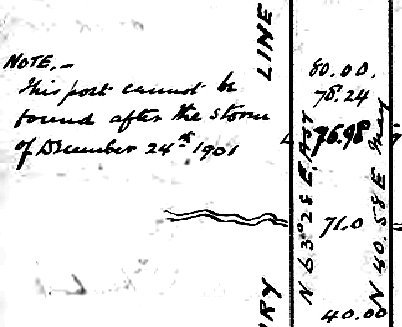 NOTE.—
This post cannot be
found after the storm
of December 24th 1901
LINE
80.00.
78.24
76.98
71.0
40.00
N 63°28 EAST
N 40.58 E
RY